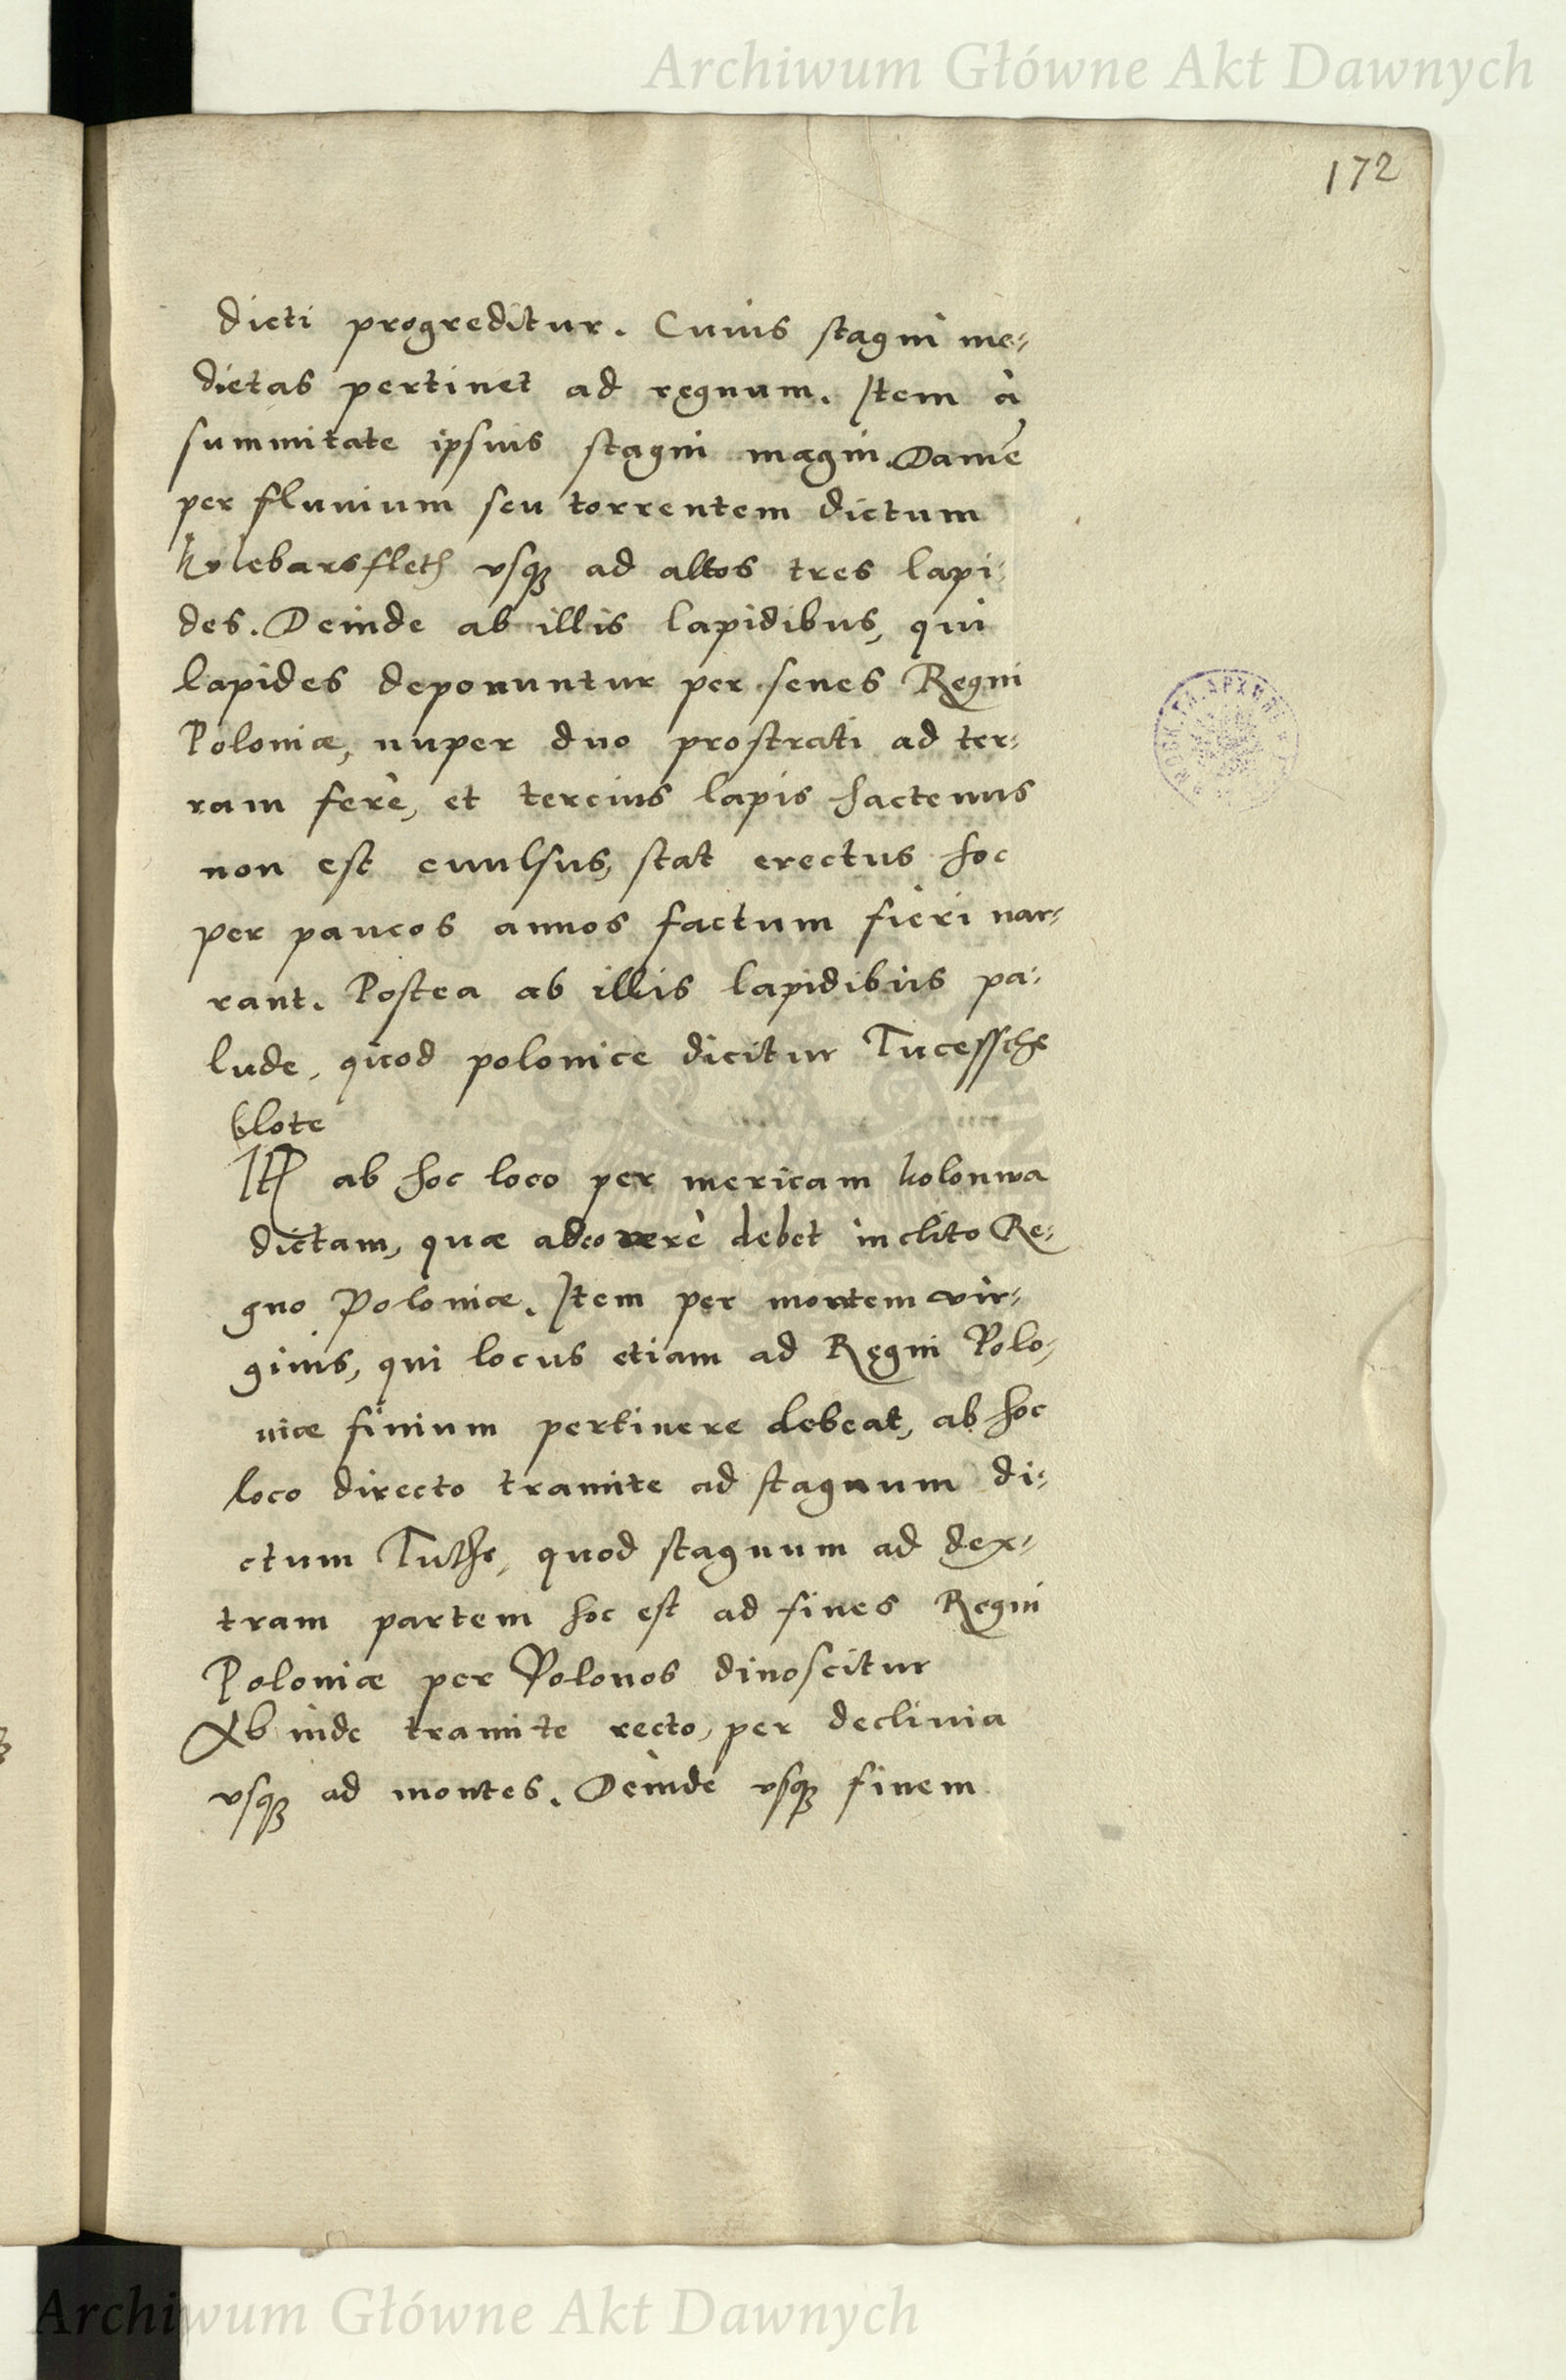 Archiwum Główne Akt Dawnych
172
dicti progreditur. Cuius stagni me-
dietas pertinet ad regnum. Item à
summitate ipsius stagni magni Damē
per fluuium seu torrentem dictum
kylebarsfleth vsq3 ad altos tres lapi-
des. Deinde ab illis lapidibus, qui
lapides deponuntur per senes Regni
Poloniæ, nuper duo prostrati ad ter-
ram ferè, et tercius lapis hactenus
non est euulsus, stat erectus hoc
per paucos annos factum fieri nar-
rant. Postea ab illis lapidibus pa-
lude, quod polonice dicitur Tucessche
blote
Itē ab hoc loco per mericam kolonwa
dictam, quæ adeo verè debet inclito Re-
gno Poloniæ. Item per montem vir-
ginis, qui locus etiam ad Regni Polo-
niæ finium pertinere debeat, ab hoc
loco directo tramite ad stagnum di-
ctum Tuche, quod stagnum ad dex-
tram partem hoc est ad fines Regni
Poloniæ per Polonos dinoscitur
Ab inde tramite recto, per decliuia
vsq3 ad montes. Deinde vsq3 finem
Archiwum Główne Akt Dawnych